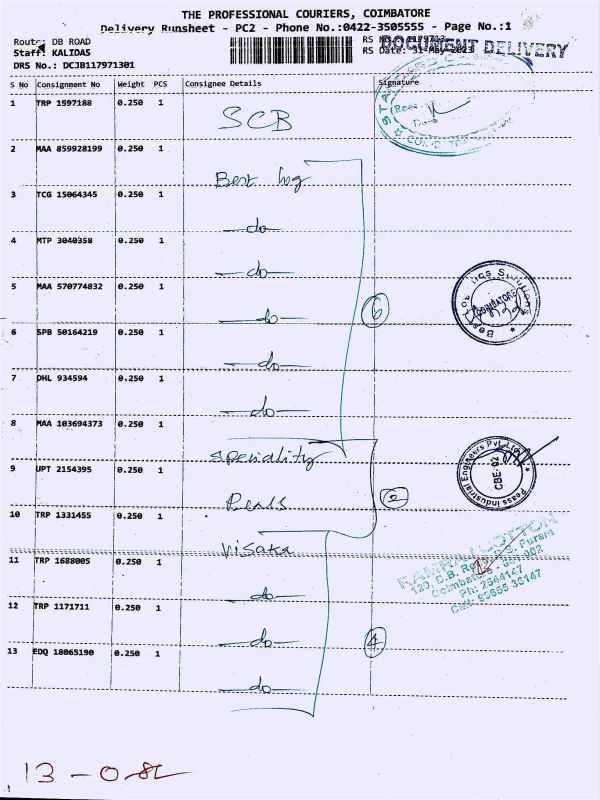 THE PROFESSIONAL COURIERS, COIMBATORE
Delivery Runsheet - PC2 - Phone No.:0422-3505555 - Page No.:1
Route: DB ROAD
RS No.: 1179713
DOCUMENT DELIVERY
Staff: KALIDAS
RS Date: 31-May-2023
DRS No.: DCJB117971301
S No Consignment No Weight PCS Consignee Details Signature
1 TRP 1597188 0.250 1 SCB
2 MAA 859928199 0.250 1 Best log
3 TCG 15064345 0.250 1 —do—
4 MTP 3040358 0.250 1 —do—
5 MAA 570774832 0.250 1 —do— 6
COIMBATORE
6 SPB 50164219 0.250 1 —do—
7 DHL 934594 0.250 1 —do—
8 MAA 103694373 0.250 1 Speciality
Peass Industrial Engineers Pvt Ltd
CBE-02
9 UPT 2154395 0.250 1 2
10 TRP 1331455 0.250 1 Visaka
RAMRAJ COTTON
120, D.B. Road, R.S. Puram
Coimbatore - 641 002
Ph: 2544147
11 TRP 1688005 0.250 1 —do—
12 TRP 1171711 0.250 1 —do— 4
13 EDQ 18065190 0.250 1 —do—